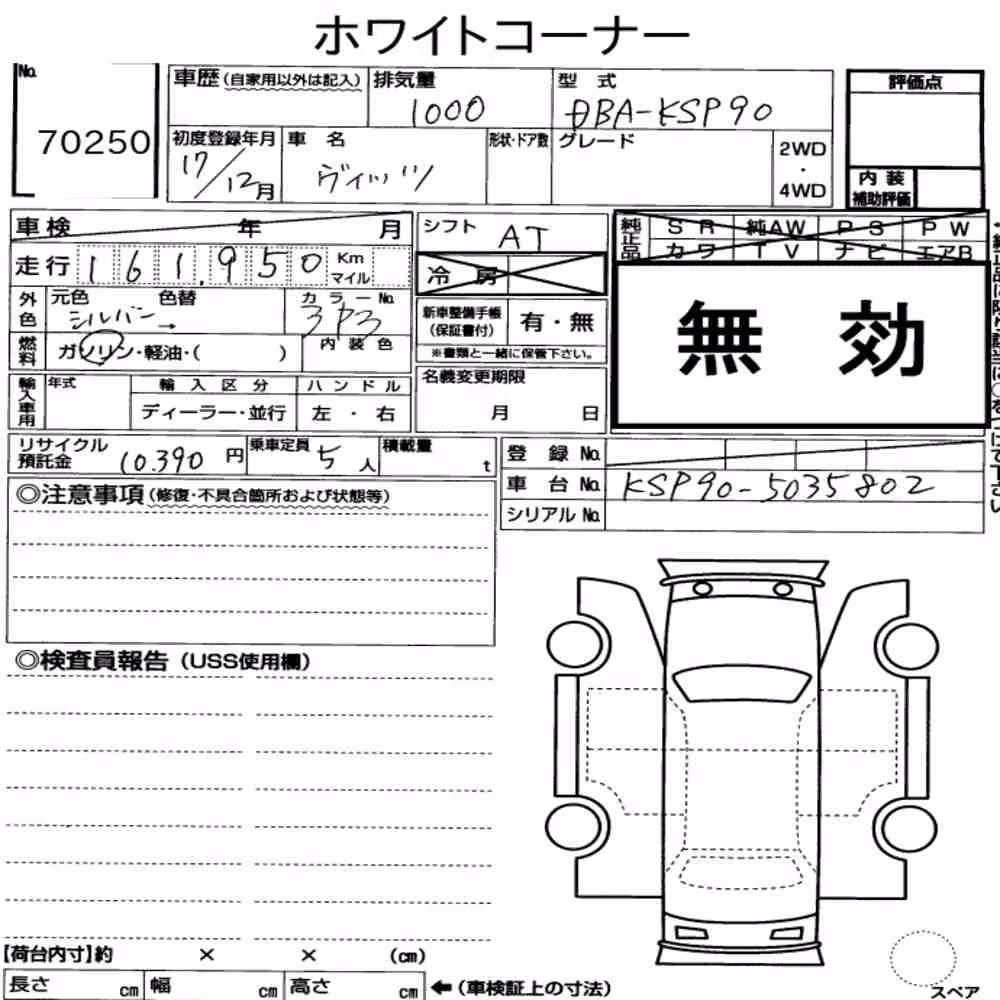 ホワイトコーナー
No.
70250
車歴(自家用以外は記入)
排気量
1000
型 式
DBA-KSP90
評価点
初度登録年月
17/12月
車 名
ヴィッツ
形状・ドア数
グレード
2WD
・
4WD
内 装
補助評価
車検 年 月
シフト
AT
純正品
SR 純AW PS PW
カワ TV ナビ エアB
走行 161,950 Km
マイル
冷 房
無 効
外色
元色 色替
シルバー→
カラーNo.
3P3
内 装 色
新車整備手帳
(保証書付)
有・無
※書類と一緒に保管下さい。
燃料
ガソリン・軽油・( )
輸入車用
年式
輸 入 区 分
ハ ン ド ル
ディーラー・並行
左 ・ 右
名義変更期限
月 日
リサイクル
預託金
10.390 円
乗車定員
5人
積載量
t
登 録 No.
車 台 No.
KSP90-5035802
シリアル No.
◎注意事項(修復・不具合箇所および状態等)
◎検査員報告(USS使用欄)
【荷台内寸】約 × × (cm)
長さ cm 幅 cm 高さ cm ←(車検証上の寸法)
スペア